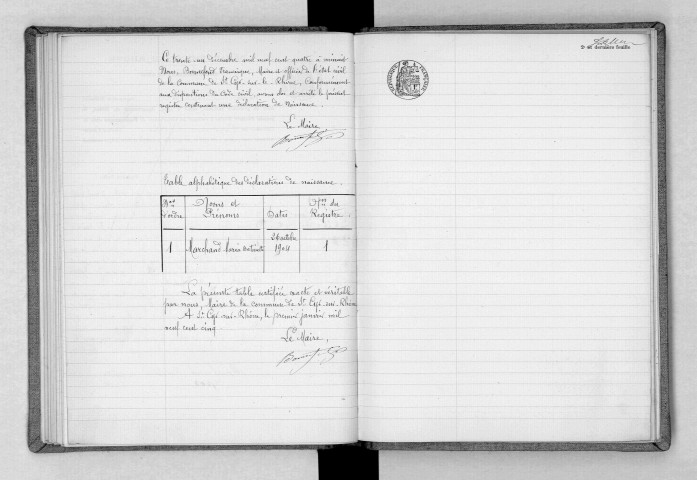 Ce trente un décembre mil neuf cent quatre à minuit
Nous, Dominique, Maire et officier de l'état civil
de la commune de St Cyr sur le Rhône, Conformément
aux dispositions du Code civil, avons clos et arrêté le présent
registre contenant une déclaration de naissance.
Le Maire
Table alphabétique des déclarations de naissance.
Nos d'ordre Noms et Prénoms Dates Nos du Registre
1 Marchand Marie Antoinette 26 octobre 1904 1
La présente table certifiée exacte et véritable
par nous, Maire de la commune de St Cyr-sur-Rhône
A St Cyr-sur-Rhône, le premier janvier mil
neuf cent cinq
Le Maire,
2e et dernière feuille